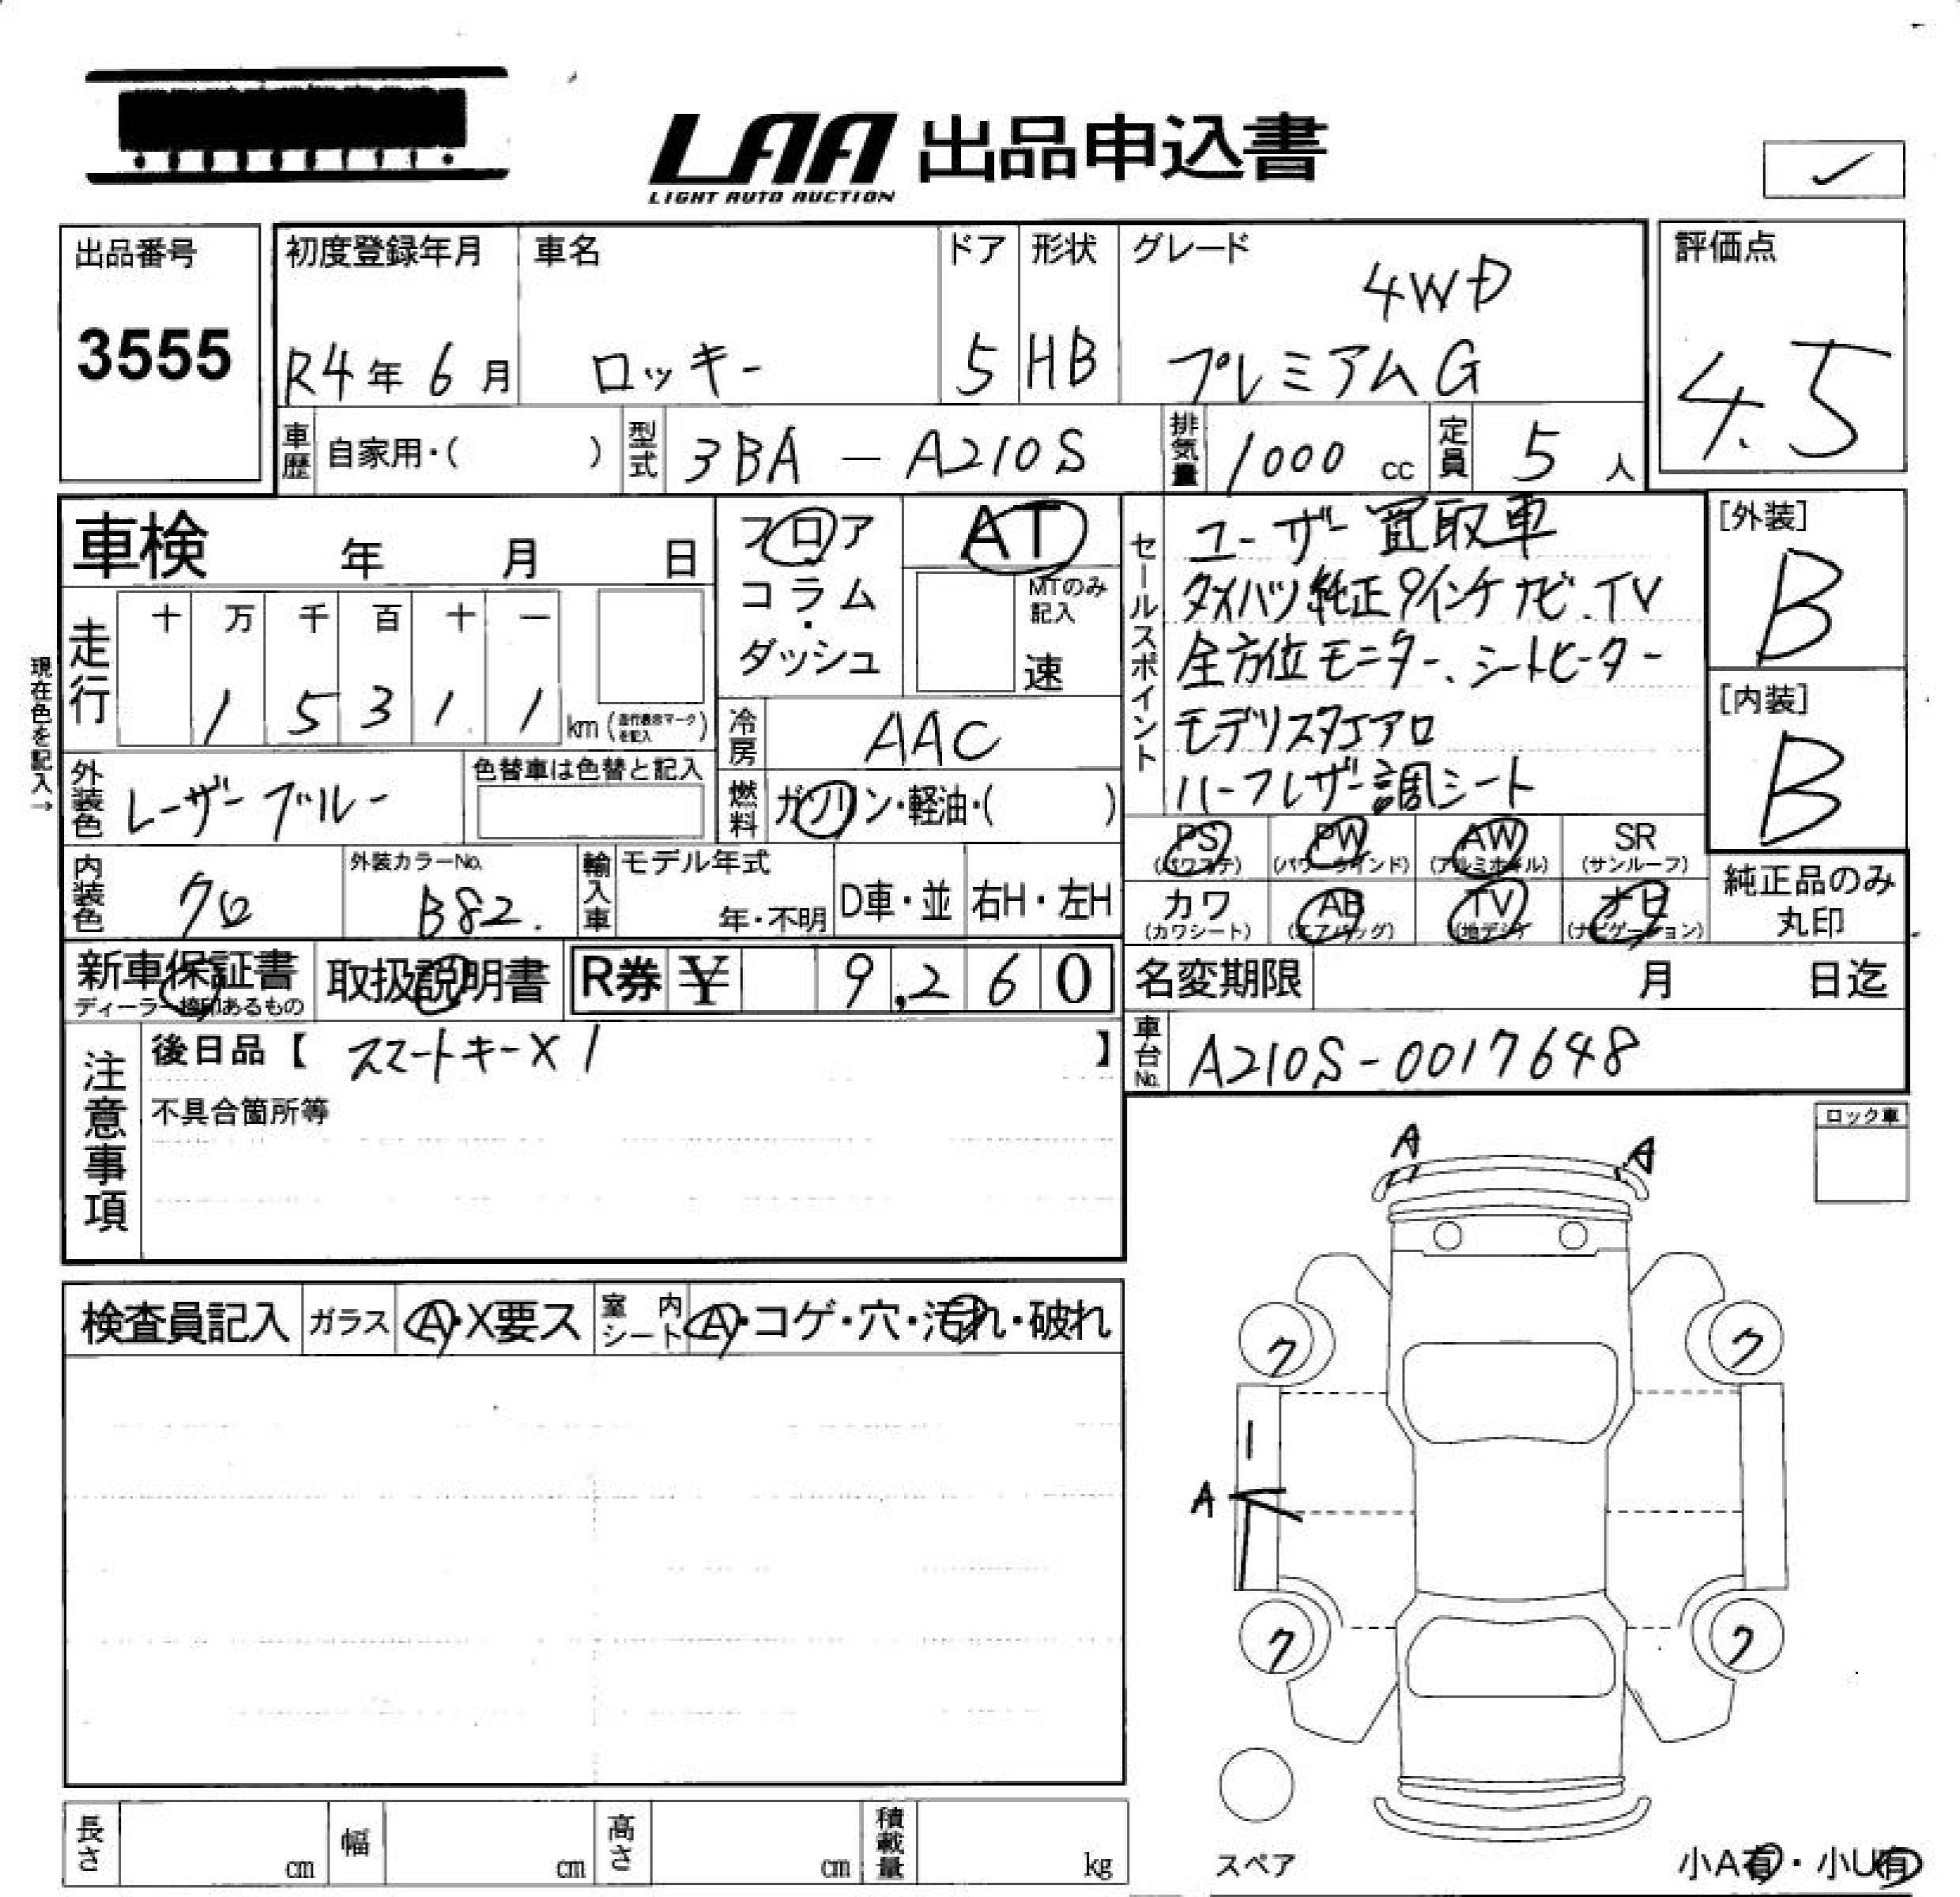 LAA 出品申込書
LIGHT AUTO AUCTION
出品番号
3555
初度登録年月
R4年6月
車名
ロッキー
ドア
5
形状
HB
グレード
4WD
プレミアムG
評価点
4.5
車歴
自家用・( )
型式
3BA-A210S
排気量
1000 cc
定員
5人
車検 年 月 日
現在色を記入→
走行
十 万 千 百 十 一
1 5 3 1 1
km (走行表示マークを記入)
フロア
・
コラム
・
ダッシュ
AT
MTのみ
記入
速
冷房
AAC
燃料
ガソリン・軽油・( )
外装色
レーザーブルー
色替車は色替と記入
内装色
クロ
外装カラーNo.
B82.
輸入車
モデル年式
年・不明
D車・並
右H・左H
セールスポイント
ユーザー買取車
ダイハツ純正9インチナビ、TV
全方位モニター、シートヒーター
モデリスタエアロ
ハーフレザー調シート
[外装]
B
[内装]
B
PS
(パワステ)
PW
(パワーウインド)
AW
(アルミホイル)
SR
(サンルーフ)
カワ
(カワシート)
AB
(エアバッグ)
TV
(地デジ)
ナビ
(ナビゲーション)
純正品のみ
丸印
新車保証書
ディーラー捺印あるもの
取扱説明書
R券 ¥ 9,260
名変期限 月 日迄
車台No.
A210S-0017648
注意事項
後日品【 スマートキー×1 】
不具合箇所等
ロック車
検査員記入
ガラス
A・X要ス
室内
シート
A・コゲ・穴・汚れ・破れ
A
A
ク
ク
A
ク
ク
スペア
小A有・小U有
長さ
cm
幅
cm
高さ
cm
積載量
kg